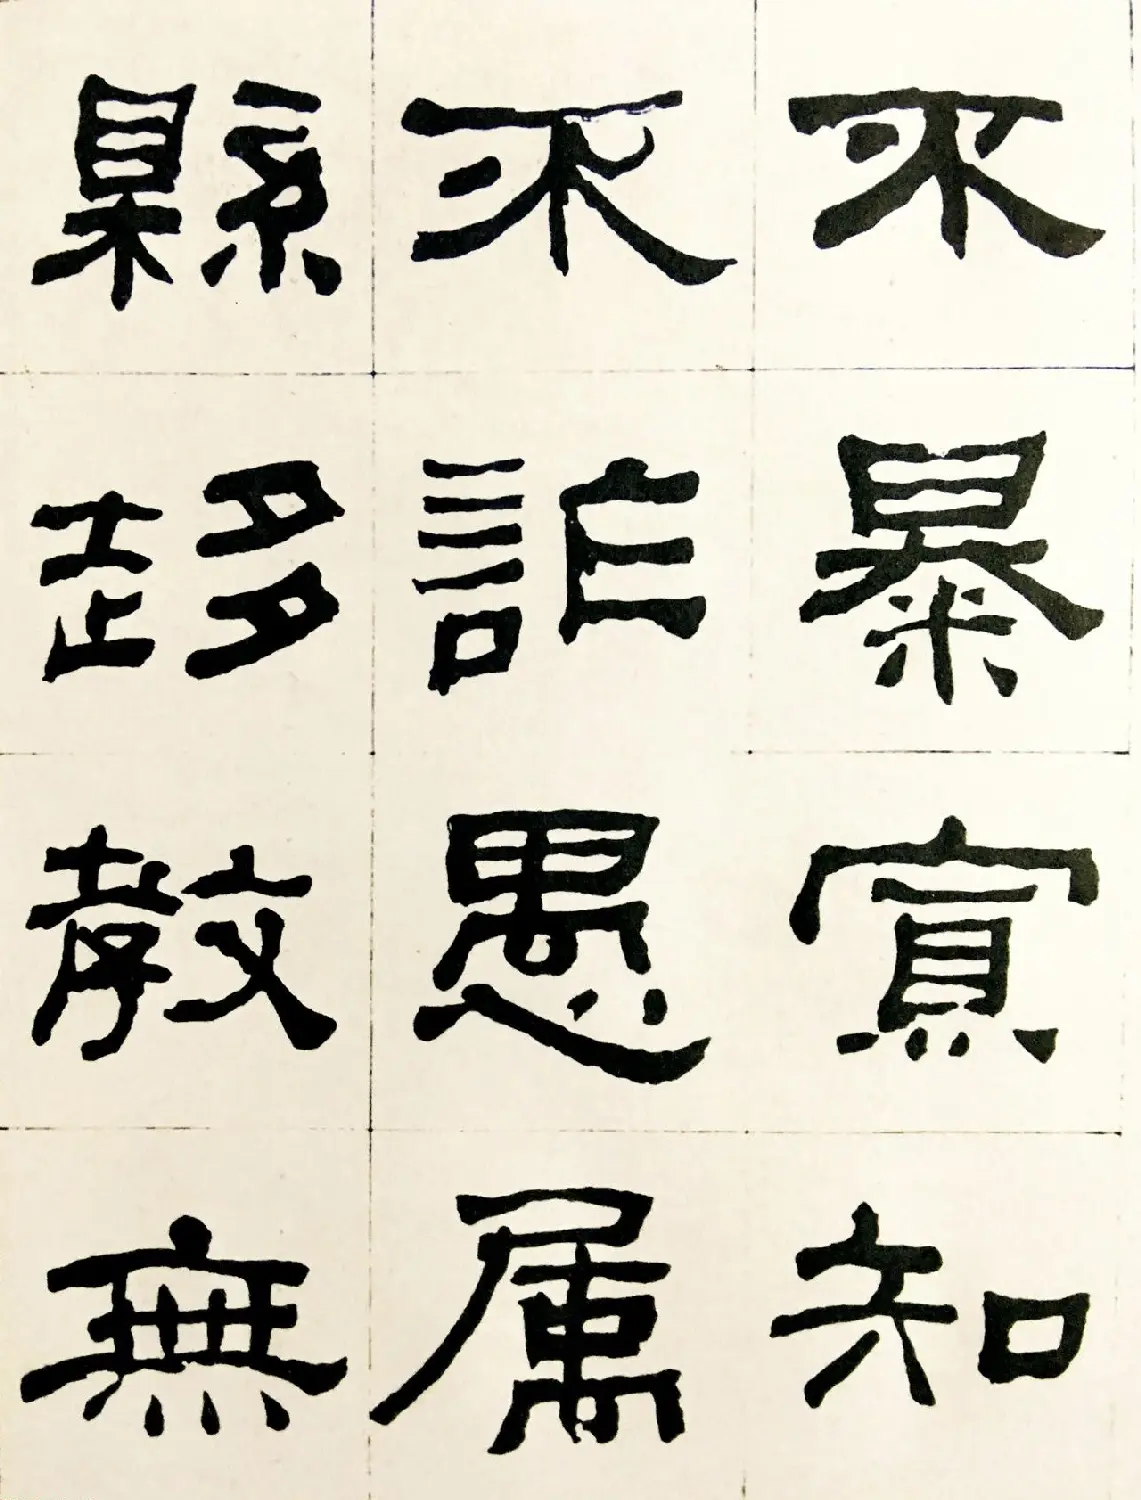 不暴寡知
不詐愚属
縣趍教無